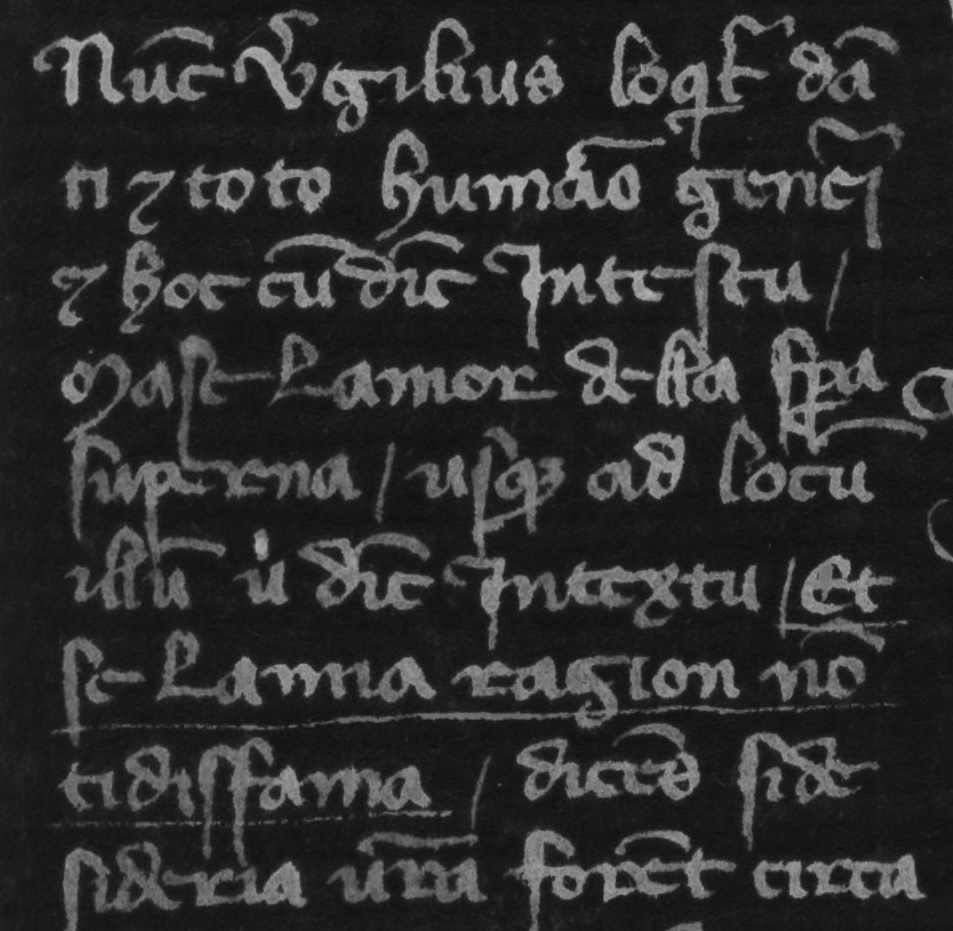 Nūc Vgilius loqt᷑ dā
ti ⁊ toto humāo genei
⁊ hoc cū dic̄ Intestu /
Mase Lamor de lla sꝑa
suprena / usqꝫ ad locū
illū u dic̄ Intextu / Et
se Lamia ragion nō
tidisfama / dicēd side
sideria ūra forēt circa